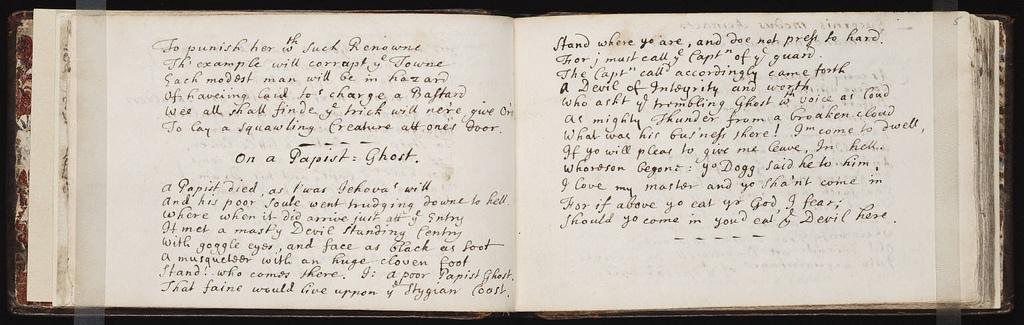 To punish her wth such Renowne
Th' example will corrupt ye Towne
Each modest man will be in hazard
Of haveing laid to's charge a Bastard
Wee all shall finde ye trick will nere give O'r
To lay a squawling Creature att one's door.
On a Papist: Ghost.
A Papist died, as 'twas Jehova's will
And his poor Soule went trudging downe to hell.
Where when it did arrive just att ye Entry
It met a masty Devil standing Centry
With goggle eyes, and face as black as soot
A musqueteer with an huge cloven foot
Stand! who comes there. I: a poor Papist Ghost.
That faine would live uppon ye Stygian Coost.
5
Stand where yo are, and doe not press to hard.
For j must call ye Captn of ye guard
The Captn call'd accordingly came forth
A Devil of Integrity and worth
Who askt ye trembling Ghost wth voice as loud
As mighty Thunder from a broaken cloud
What was his bus'ness there! I'm come to dwell,
If yo will pleas to give me leave, In hell.
Whoreson begone: yo Dogg said he to him
I love my master and yo sha'nt come in
For if above yo eat yr God I fear;
Should yo come in you'd eat ye Devil here.